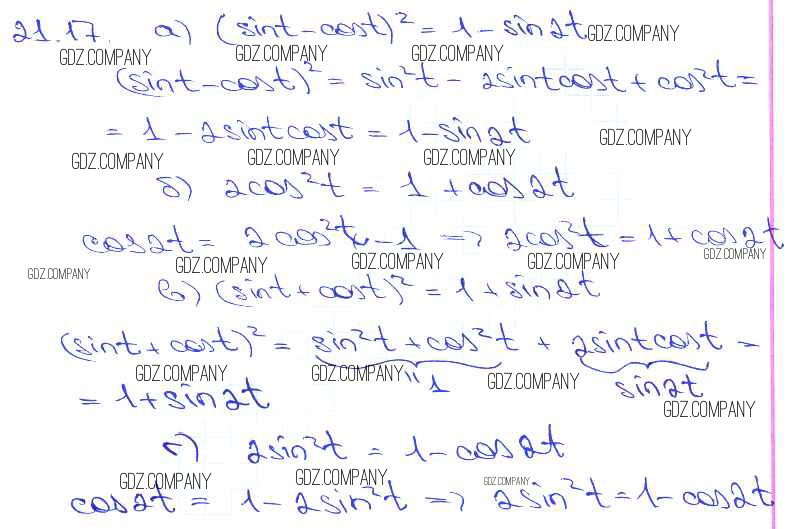 21.17. а) (sint - cost)² = 1 - sin2t GDZ.COMPANY
GDZ.COMPANY GDZ.COMPANY GDZ.COMPANY
(sint - cost)² = sin²t - 2sintcost + cos²t =
= 1 - 2sintcost = 1 - sin2t GDZ.COMPANY
GDZ.COMPANY GDZ.COMPANY GDZ.COMPANY
б) 2cos²t = 1 + cos2t
cos2t = 2cos²t - 1 => 2cos²t = 1 + cos2t
GDZ.COMPANY GDZ.COMPANY GDZ.COMPANY GDZ.COMPANY GDZ.COMPANY
в) (sint + cost)² = 1 + sin2t
(sint + cost)² = sin²t + cos²t + 2sintcost =
GDZ.COMPANY GDZ.COMPANY " 1 GDZ.COMPANY sin2t
= 1 + sin2t GDZ.COMPANY
г) 2sin²t = 1 - cos2t
GDZ.COMPANY GDZ.COMPANY GDZ.COMPANY
cos2t = 1 - 2sin²t => 2sin²t = 1 - cos2t